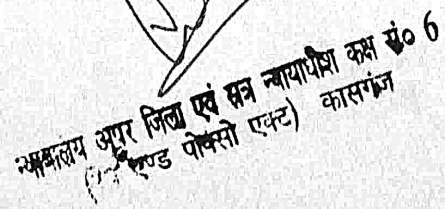 न्यायालय अपर जिला एवं सत्र न्यायाधीश कक्ष सं० 6
एण्ड पोक्सो एक्ट) कासगंज